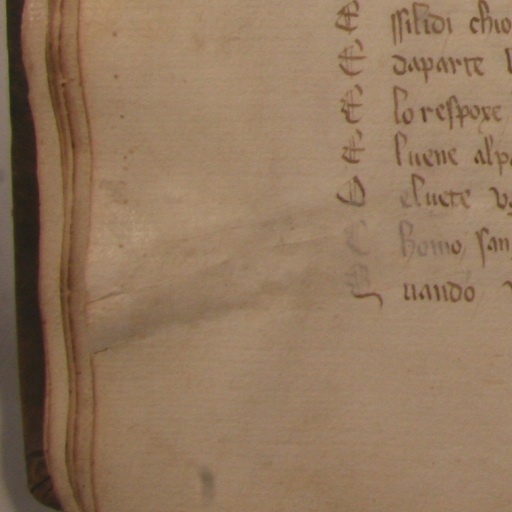 E ssilidi chio
E daparte
E lo respoxe
E luene alpa
D eluete
E homo san
Q uando